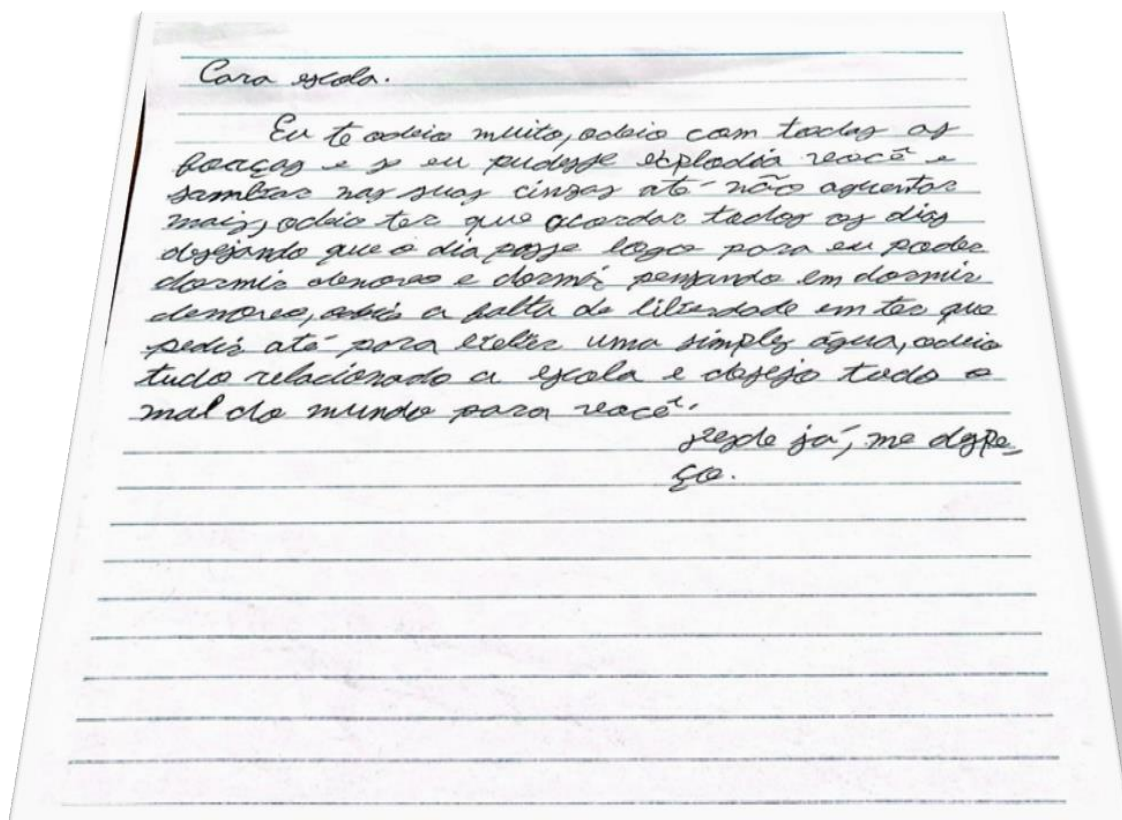 Cara escola.
Eu te odeio muito, odeio com todas as
forças e se eu pudesse explodia você e
sambiar nas suas cinzas até não aguentar
mais, odeio ter que acordar todos os dias
desejando que o dia passe logo para eu poder
dormir denovo e dormi pensando em dormir
denovo, odeio a falta de liberdade em ter que
pedir até para beber uma simples água, odeio
tudo relacionado a escola e desejo todo o
mal do mundo para você.
desde já, me despe-
ço.